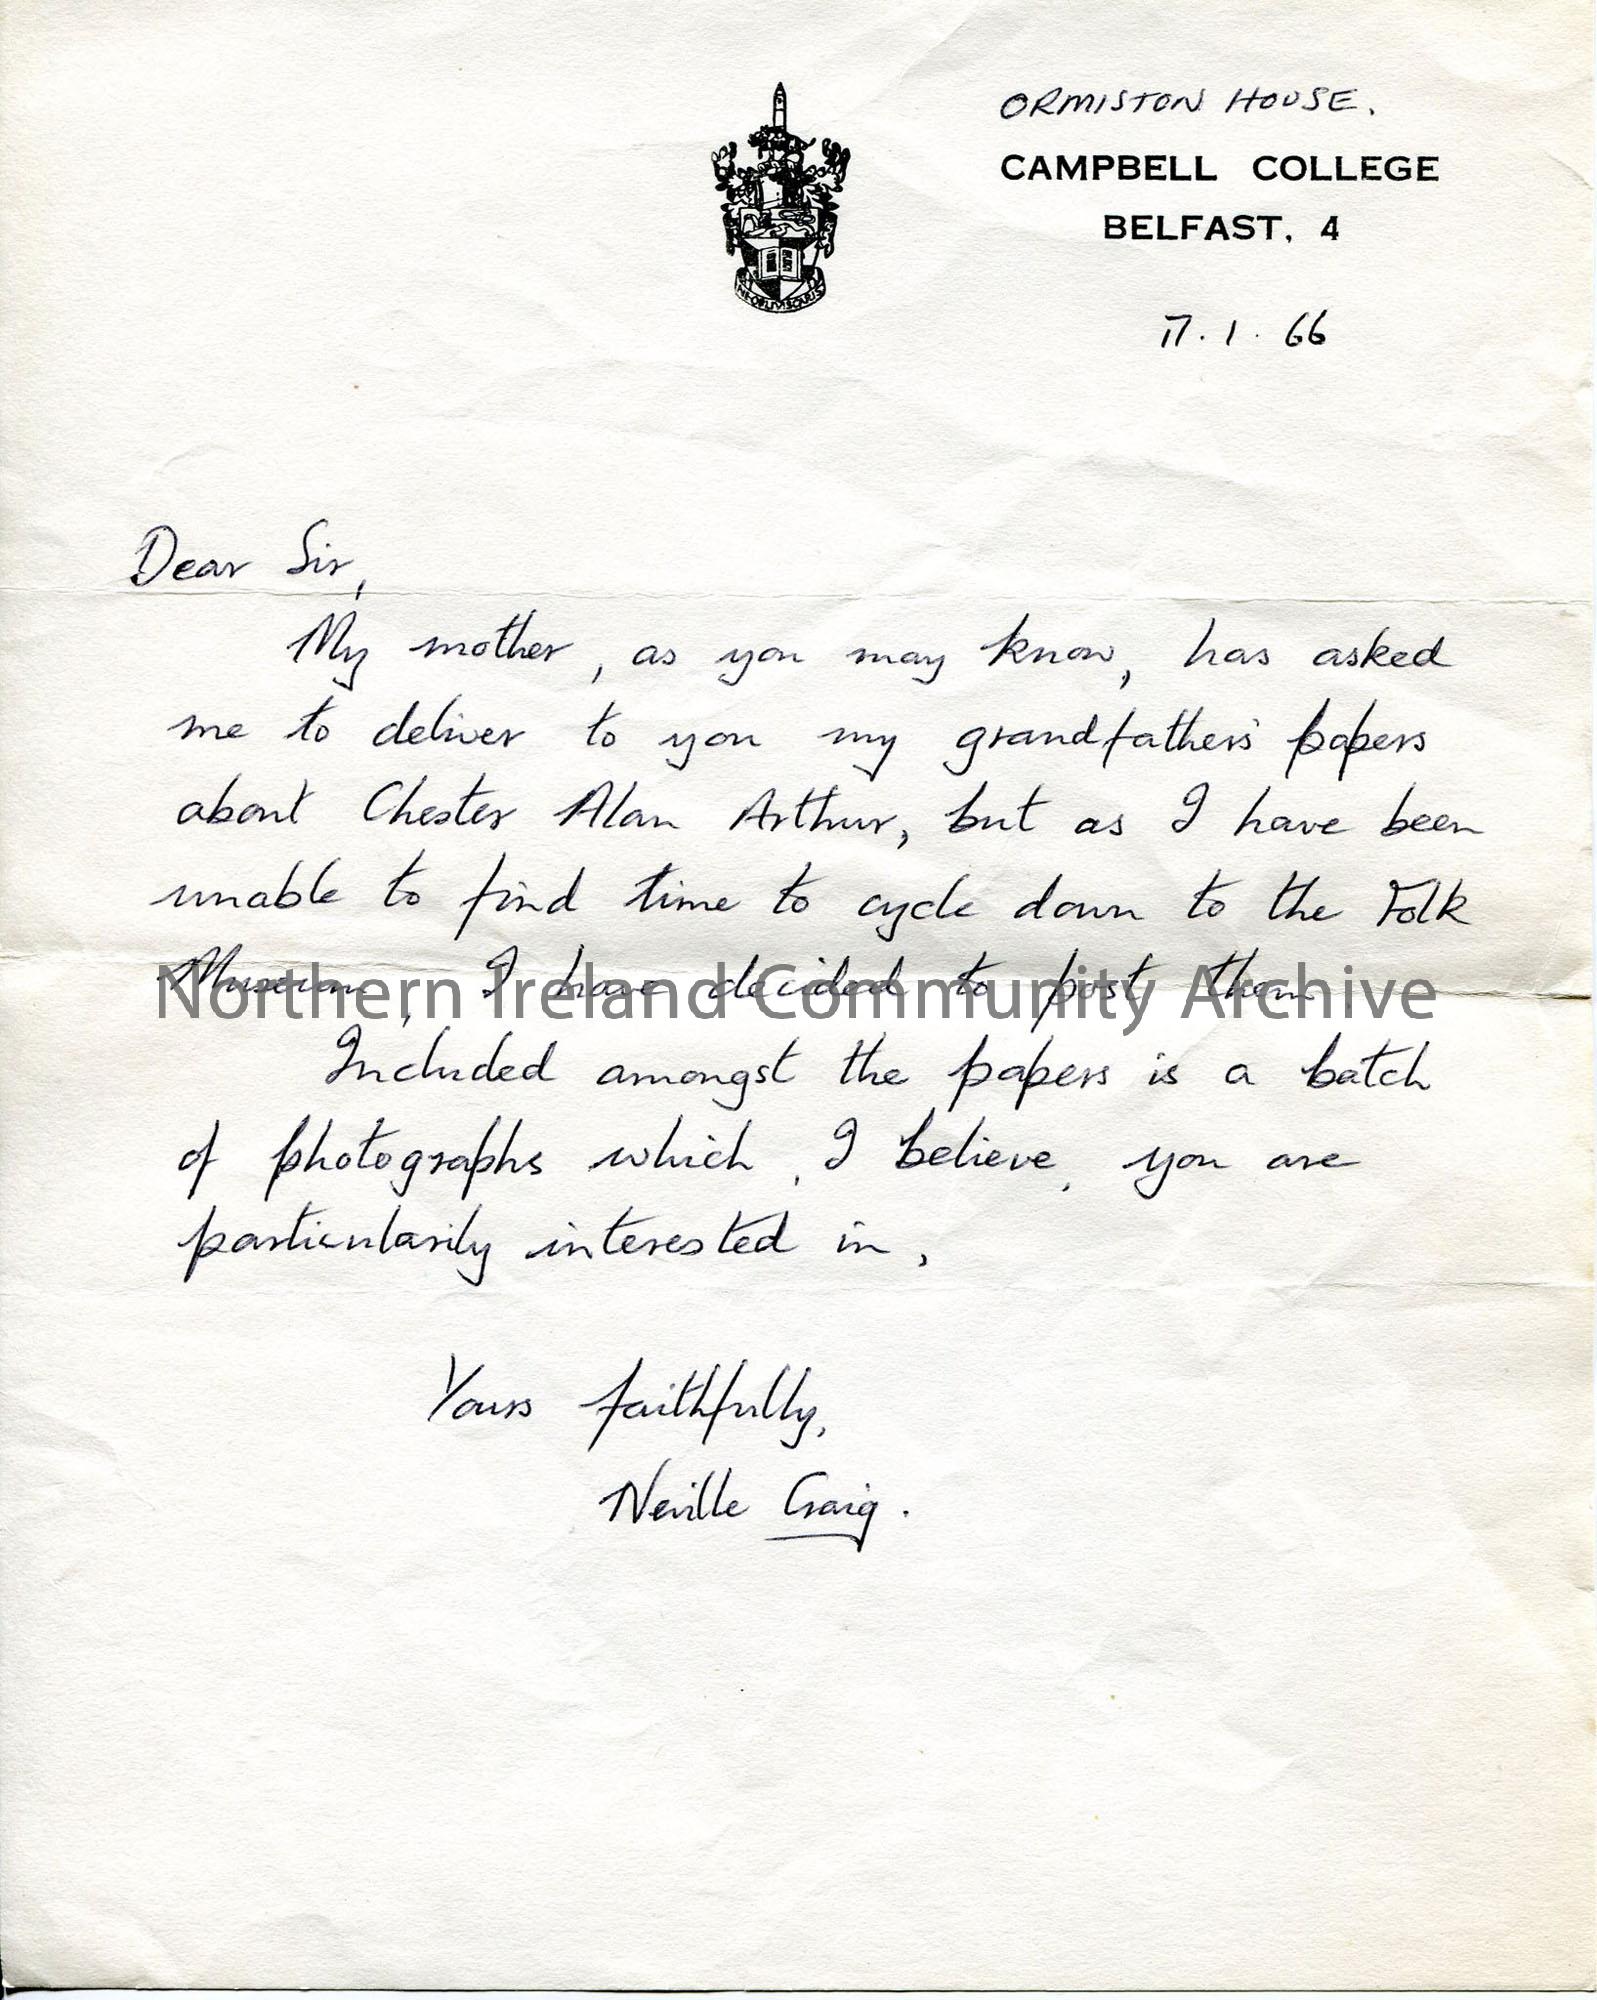 ORMISTON HOUSE.
CAMPBELL COLLEGE
BELFAST, 4
17.1.66
Dear Sir,
My mother, as you may know, has asked
me to deliver to you my grandfather's papers
about Chester Alan Arthur, but as I have been
unable to find time to cycle down to the Folk
Museum, I have decided to post them.
Northern Ireland Community Archive
Included amongst the papers is a batch
of photographs which, I believe, you are
particularily interested in.
Yours faithfully,
Neville Craig.